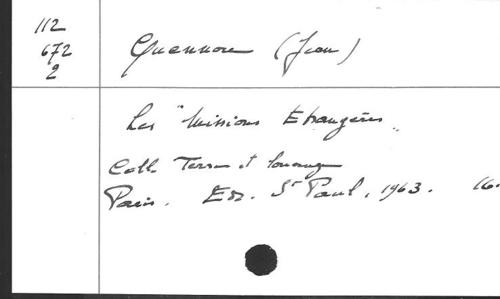 112
672
2
Guennou (Jean)
Les "Missions Etrangères"
Coll. Terre et
Paris. Ed. St Paul, 1963. 16.